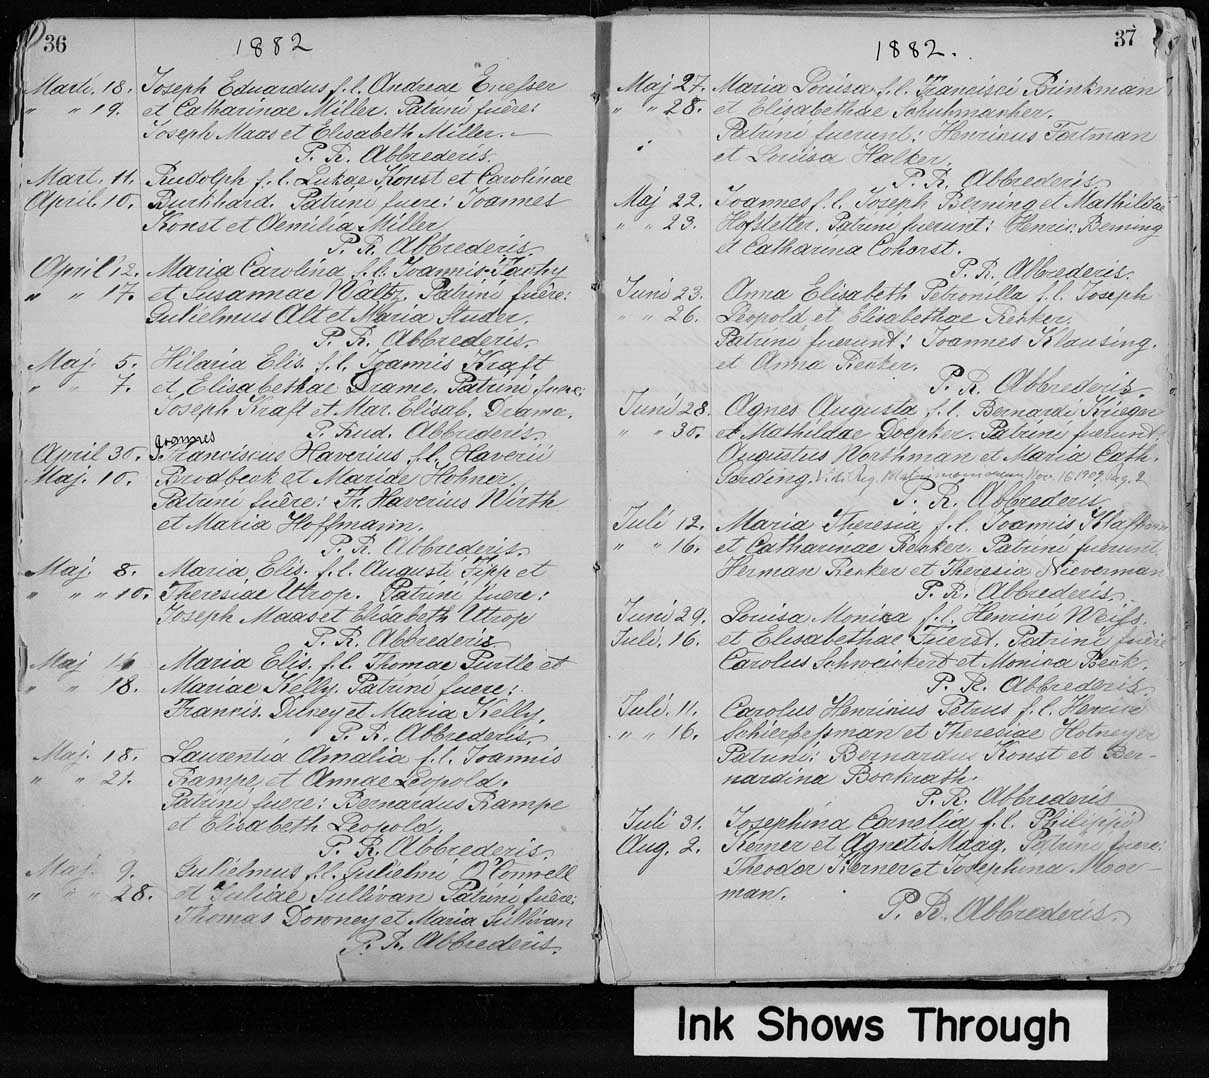 36
1882
Marti. 18. Joseph Eduardus f. l. Andreae
" " 19. et Catharinae Miller. Patrini fuêre:
Joseph Maas et Elisabeth Miller.
P. R. Abbrederis.
Mart. 11. Rudolph f. l. Lukae Konst et Carolinae
April. 10. Burkhard. Patrini fuere: Joannes
Konst et Aemilia Miller
P. R. Abbrederis.
April 12. Maria Carolina f. l. Joannis
" " 17. et Susannae Waltz. Patrini fuêre:
Gulielmus Alt et Maria Studer.
P. R. Abbrederis.
Maj. 5. Hilaria Elis. f. l. Joannis Kraft
" " 7. et Elisabethae Drame. Patrini fuere:
Joseph Kraft et Mar. Elisab. Drame.
P. Rud. Abbrederis.
Joannes
April 30. Franciscus Haverius f. l. Haverii
Maj. 10. Brodbeck et Mariae Hohner.
Patrini fuêre: Fr. Haverius Wirth
et Maria Hoffmann.
P. R. Abbrederis.
Maj. 8. Maria Elis. f. l. Augusti Fipp et
" " " 10. Theresiae Uttrop. Patrini fuere:
Joseph Maas et Elisabeth Uttrop
P. R. Abbrederis
Maj Maria Elis. f. l. Thomae Pirtle et
" " 18. Mariae Kelly. Patrini fuere:
Francis. Dilney et Maria Kelly.
P. R. Abbrederis.
Maj. 18. Laurentia Amalia f. l. Joannis
" " 21. Rampe, et Annae Leopold.
Patrini fuere: Bernardus Rampe
et Elisabeth Leopold.
P. R. Abbrederis.
Maj. 9. Gulielmus f. l. Gulielmi O'Connell
" " " 28. et Juliae Sullivan Patrini fuêre:
Thomas Downey et Maria Sullivan
P. R. Abbrederis.
37
1882.
Maj 27. Maria Louisa f. l. Francisci Brinkman
" " 28. et Elisabethae Schuhmacher.
Patrini fuerunt: Henricus Fortman
et Louisa Halker.
P. R. Abbrederis
Maj 22. Joannes f. l. Joseph Berning et Mathildae
" " 23. Hofstetter. Patrini fuerint: Henric. Berning
et Catharina Cohorst.
P. R. Abbrederis.
Juni 23. Anna Elisabeth Petronilla f. l. Joseph
" " 26. Leopold et Elisabethae Recker.
Patrini fuerunt: Joannes Klausing.
et Anna Recker.
P. R. Abbrederis.
Juni 28. Agnes Augusta f. l. Bernardi Krieger
" " 30. et Mathildae Doepker. Patrini fuerunt.
Augustus Worthman et Maria Cath.
Gerding. Vide Reg. Matrimoniorum Nov. 16. 1909. Pag. 2
P. R. Abbrederis
Juli 12. Maria Theresia f. l. Joannis
" " 16. et Catharinae Recker. Patrini fuerunt.
Herman Recker et Theresia Nieverman
P. R. Abbrederis.
Juni 29. Louisa Monica f. l. Henrici Weifs.
Juli. 16. et Elisabethae Fuerst. Patrini fuêre
Carolus Schweickert et Monica Beck.
P. R. Abbrederis.
Juli. 11. Carolus Henricus Petrus f. l. Henric
" " 16. et Theresiae
Patrini: Bernardus Konst et Ber-
nardina Bockrath.
P. R. Abbrederis
Juli 31. Josephina Cornelia f. l. Philippi
Aug. 2. Kerner et Agnetis Maag. Patrini fuere:
Theodor Kerner et Josephina Moor-
man.
P. R. Abbrederis.
Ink Shows Through